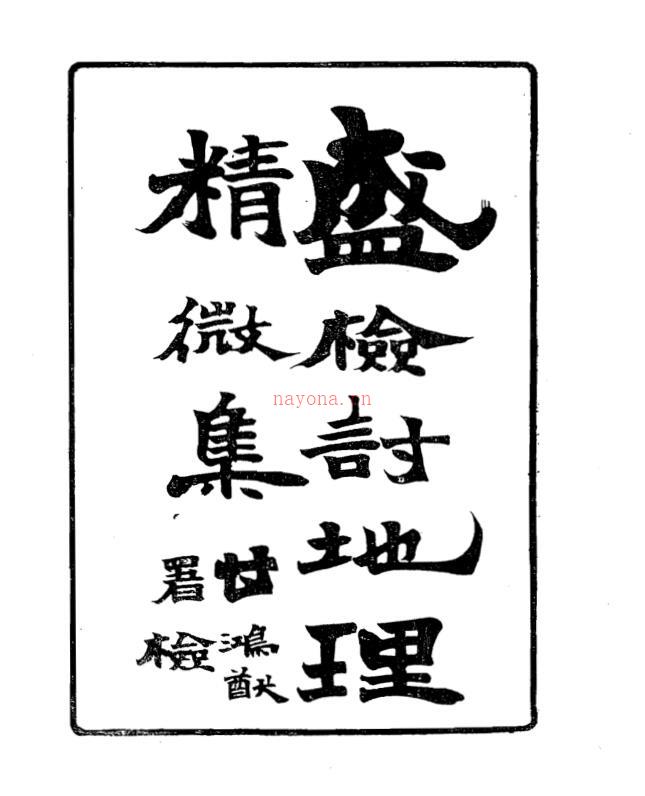 盛檢討地理
精微集
甘鴻猷
署檢
nayona.cn